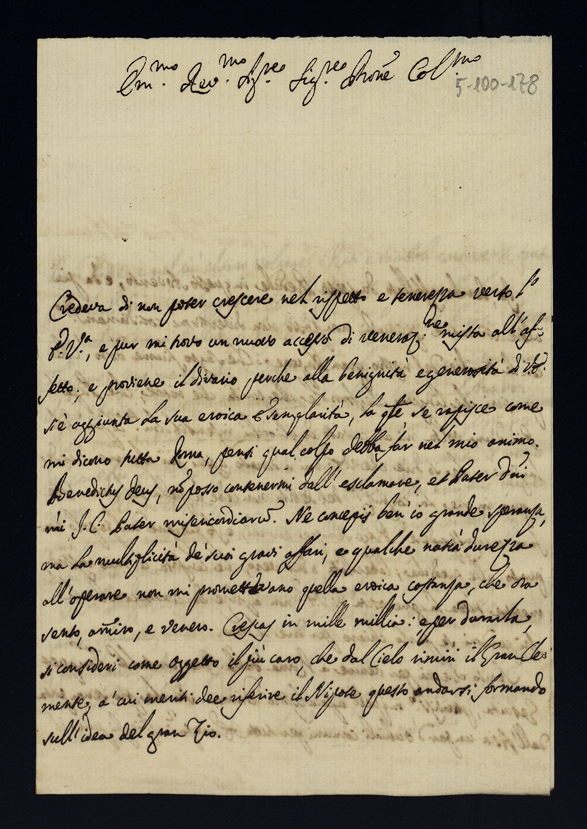 Em.mo Rev.mo Sig.re Sig.re Prone Col.mo
5-100-178
Credeva di non poter crescere nel rispetto e tenerezza verso l'
V.ra, e pur mi trovo un nuovo accesso di veneraz.ne mista all'af-
fetto; e proviene il divario perche alla benignità e generosità di
si è aggiunta la sua eroica Esemplarità, la qle se rapisce come
mi dicono tutta Roma, pensi qual colpo debba far nel mio animo.
Benedictus Deus, nõ posso contenermi dall'esclamare, et Pater Dñi
ñri J. C. Pater misericordiarũ. Ne concepij ben'io grande speranza,
ma la multiplicità de suoi gravi affari, e qualche natia durezza
all'operare non mi promettevano quella eroica costanza, che ora
sento, am̃iro, e venero. Crescas in mille millia: e per durarla,
si consideri come oggetto il più caro, che dal Cielo rimiri il Gran Cle-
mente, a' cui meriti dee riferire il Nipote questo andarsi formando
sull'idea del gran Zio.